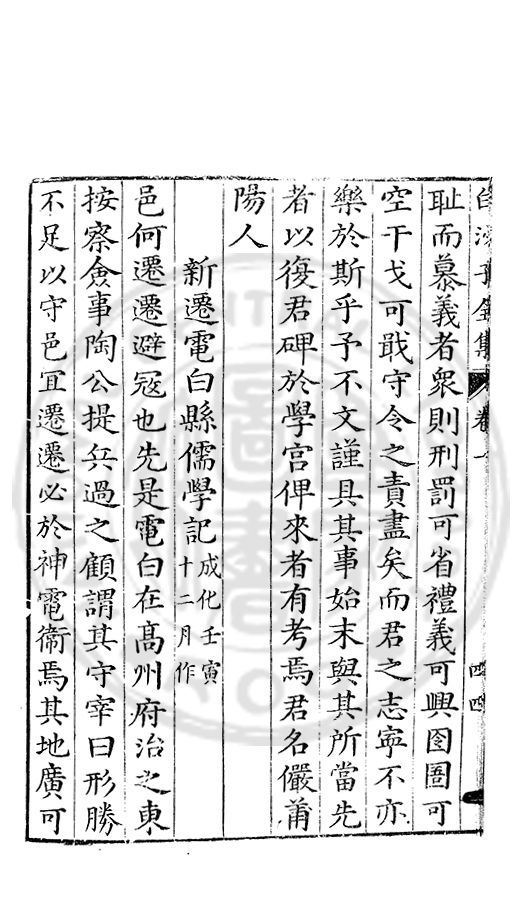 白沙子全集 卷一 四四
耻而慕義者衆則刑罰可省禮義可興囹圄可
空干戈可戢守令之責盡矣而君之志寧不亦
樂於斯乎予不文謹具其事始末與其所當先
者以復君碑於學宫俾來者有考焉君名儼莆
陽人
新遷電白縣儒學記 成化壬寅十二月作
邑何遷遷避冦也先是電白在髙州府治之東
按察僉事陶公提兵過之顧謂其守宰曰形勝
不足以守邑冝遷遷必於神電衞焉其地廣可